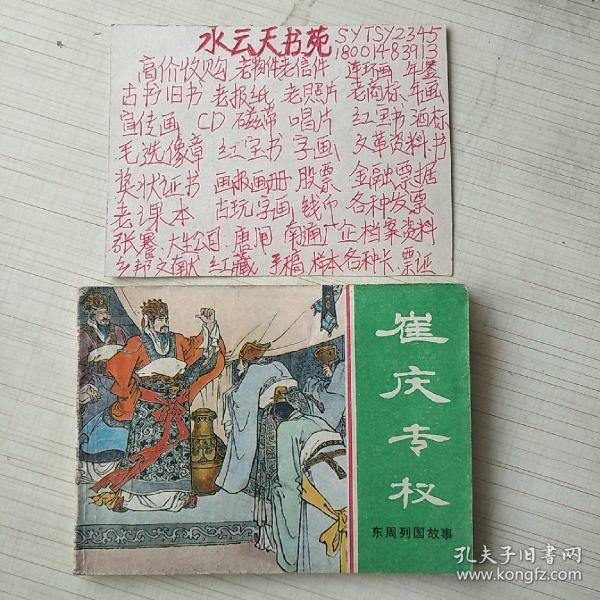 水云天书苑
SYTSY2345
18001483913
高价收购 老物件老信件 连环画 年鉴
古书旧书 老报纸 老照片 老商标 年画
宣传画 CD 磁带 唱片 红宝书 酒标
毛选像章 红宝书 字画 文革资料书
奖状证书 画报画册 股票 金融票据
老课本 古玩字画 钱币 各种发票
张謇 大生公司 唐闸 南通广企档案资料
乡邦文献 红藏 手稿 样本各种卡 票证
崔庆专权
东周列国故事
孔夫子旧书网
www.kongfz.com